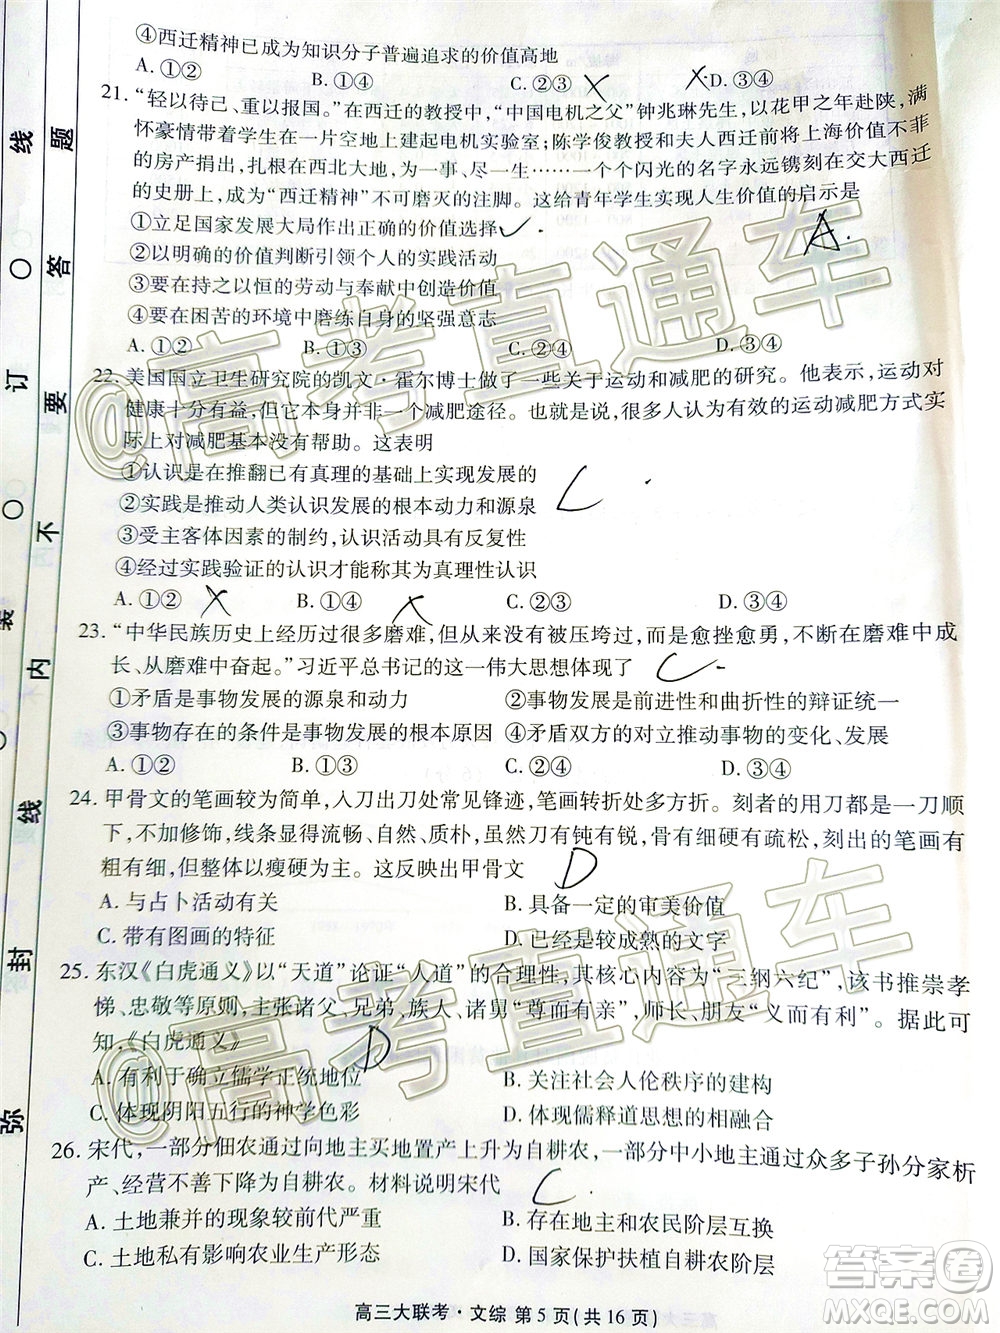 ④西迁精神已成为知识分子普遍追求的价值高地
A. ①② B. ①④ C. ②③ D. ③④
21. “轻以待己、重以报国。”在西迁的教授中，“中国电机之父”钟兆琳先生，以花甲之年赴陕，满
怀豪情带着学生在一片空地上建起电机实验室；陈学俊教授和夫人西迁前将上海价值不菲
的房产捐出，扎根在西北大地，为一事、尽一生……一个个闪光的名字永远镌刻在交大西迁
的史册上，成为“西迁精神”不可磨灭的注脚。这给青年学生实现人生价值的启示是
①立足国家发展大局作出正确的价值选择
A.
②用正确的价值判断引领个人的实践活动
③要在持之以恒的劳动与奉献中创造价值
④要在困苦的环境中磨练自身的坚强意志
A. ①② B. ①③ C. ②④ D. ③④
22. 美国国立卫生研究院的凯文·霍尔博士做了一些关于运动和减肥的研究。他表示，运动对
健康十分有益，但它本身并非一个减肥途径。也就是说，很多人认为有效的运动减肥方式实
际上对减肥基本没有帮助。这表明
①认识是在推翻已有真理的基础上实现发展的
②实践是推动人类认识发展的根本动力和源泉
③受主客体因素的制约，认识具有反复性
④经过实践验证的认识才能称其为真理性认识
A. ①② B. ①④ C. ②③ D. ③④
23. “中华民族历史上经历过很多磨难，但从来没有被压垮过，而是愈挫愈勇，不断在磨难中成
长、从磨难中奋起。”习近平总书记的这一伟大思想体现了
C.
①矛盾是事物发展的源泉和动力 ②事物发展是前进性和曲折性的辩证统一
③事物存在的条件是事物发展的根本原因 ④矛盾双方的对立推动事物的变化、发展
A. ①② B. ①③ C. ②④ D. ③④
24. 甲骨文的笔画较为简单，入刀出刀处常见锋迹，笔画转折处多方折。刻者的用刀都是一刀顺
下，不加修饰，线条显得流畅、自然、质朴，虽然刀有钝有锐，骨有细硬有疏松，刻出的笔画有
粗有细，但整体以瘦硬为主。这反映出甲骨文
D
A. 与占卜活动有关 B. 具备一定的审美价值
C. 带有图画的特征 D. 已经是较成熟的文字
25. 东汉《白虎通义》以“天道”论证“人道”的合理性，其核心内容为“三纲六纪”，该书推崇孝
悌、忠敬等原则，主张诸父、兄弟、族人、诸舅“尊而有亲”，师长、朋友“义而有利”。据此可
知，《白虎通义》
D
A. 有利于确立儒学正统地位 B. 关注社会人伦秩序的建构
C. 体现阴阳五行的神学色彩 D. 体现儒释道思想的相融合
26. 宋代，一部分佃农通过向地主买地置产上升为自耕农，一部分中小地主通过众多子孙分家析
产、经营不善下降为自耕农。材料说明宋代
C.
A. 土地兼并的现象较前代严重 B. 存在地主和农民阶层互换
C. 土地私有影响农业生产形态 D. 国家保护扶植自耕农阶层
高三大联考·文综 第 5 页(共 16 页)
弥 封 线 内 不 要 答 题
装 订 线
@高考直通车
@高考直通车
答案圈
MXQE.COM